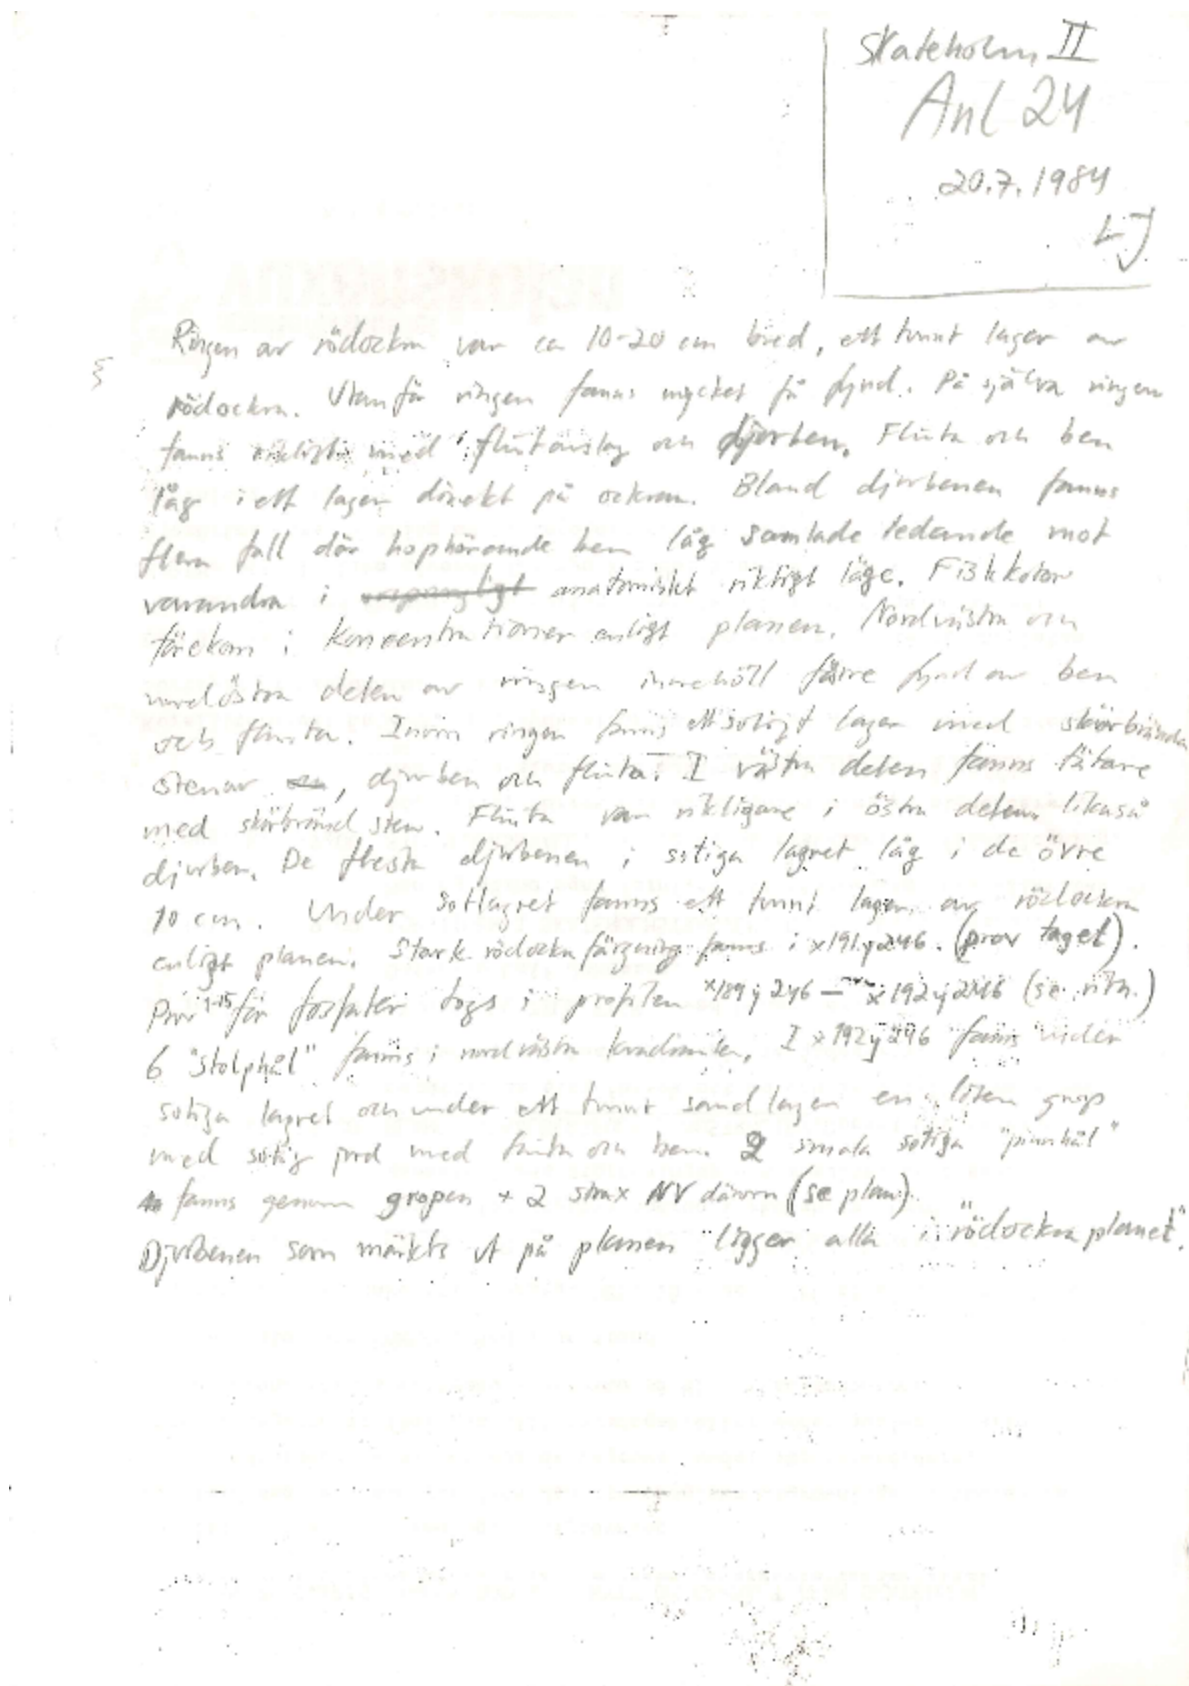 Skateholm II
Anl 24
20.7.1984
LJ
Ringen av rödockra var ca 10-20 cm bred, ett tunnt lager av
rödockra. Utanför ringen fanns mycket få fynd. På själva ringen
fanns rikligt med flintavslag och djurben. Flinta och ben
låg i ett lager direkt på ockran. Bland djurbenen fanns
flera fall där hophörande ben låg samlade ledande mot
varandra i ursprungligt anatomiskt riktigt läge. Fiskkotor
förekom i koncentrationer enligt planen. Nordvästra och
nordöstra delen av ringen innehöll färre fynd av ben
och flinta. Inom ringen fanns ett sotigt lager med skörbrända
stenar, djurben och flinta. I västra delen fanns tätare
med skörbränd sten. Flinta var rikligare i östra delen, likaså
djurben. De flesta djurbenen i sotiga lagret låg i de övre
10 cm. Under sotlagret fanns ett tunnt lager av rödockra
enligt planen. Stark rödockrafärgning fanns i x191y246. (prov taget).
Prov 1-15 för fosfater togs i profilen x189y246 – x192y246 (se ritn.)
6 "stolphål" fanns i nordvästra kvadranten. I x192y246 fanns under
sotiga lagret och under ett tunnt sandlager en liten grop
med sotig jord med flinta och ben. 2 smala sotiga "pinnhål"
fanns genom gropen + 2 strax NV därom (se plan).
Djurbenen som märkts ut på planen ligger alla i "rödockraplanet".